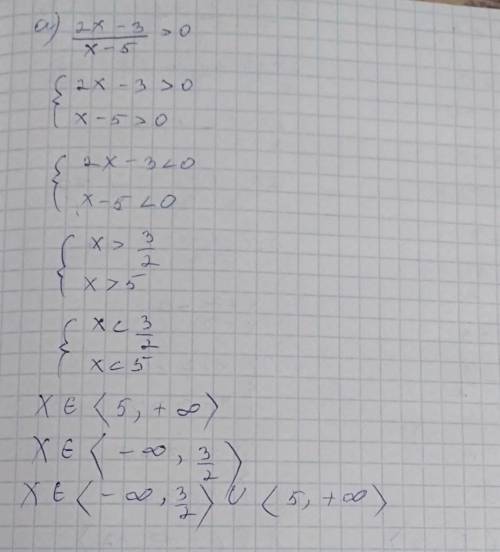 а) (2x - 3)/(x - 5) > 0
{ 2x - 3 > 0
x - 5 > 0
{ 2x - 3 < 0
x - 5 < 0
{ x > 3/2
x > 5
{ x < 3/2
x < 5
X ∈ ⟨5, +∞⟩
X ∈ ⟨-∞, 3/2⟩
X ∈ ⟨-∞, 3/2⟩ ∪ ⟨5, +∞⟩